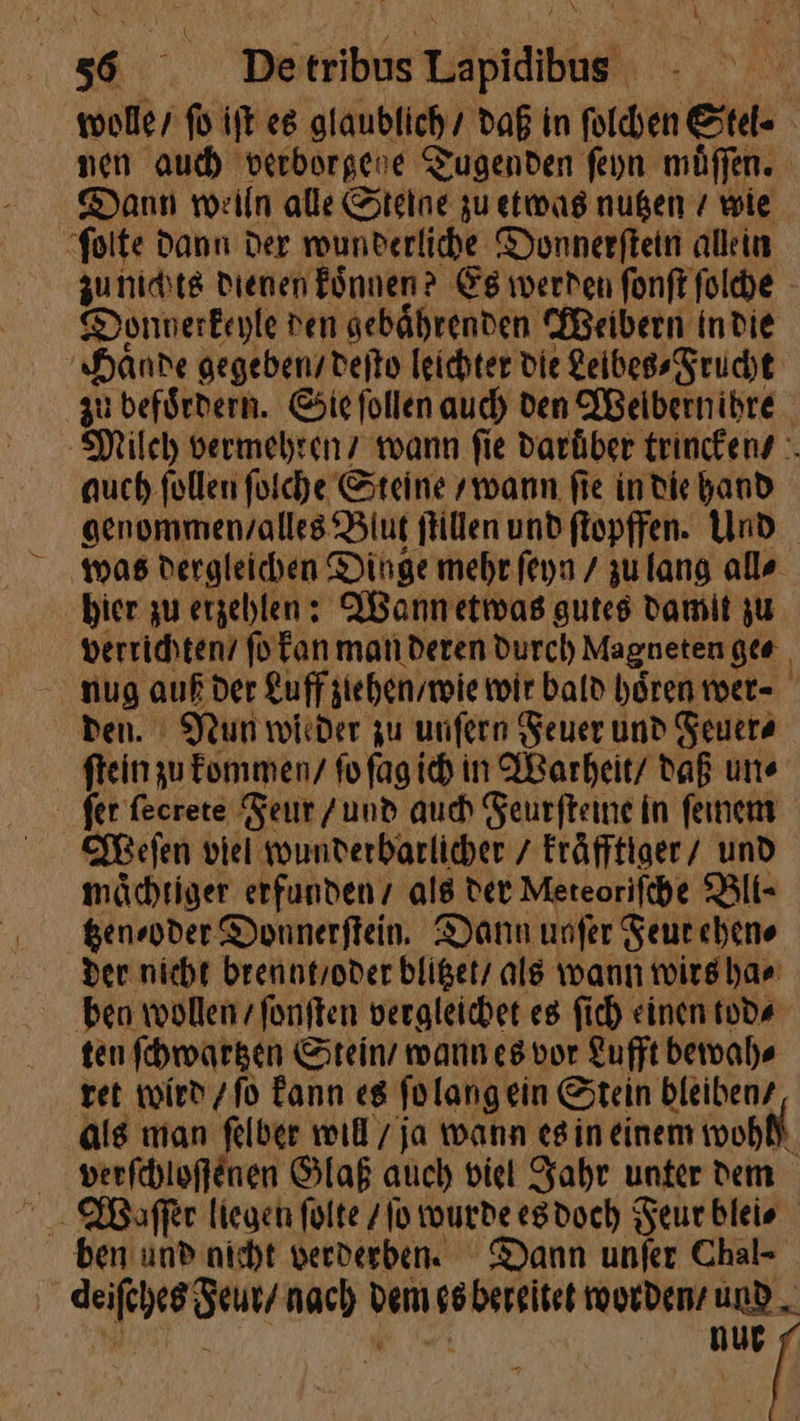 56 De tribus Lapidibus
wolle / ſo iſt es glaublich / daß in ſolchen Stel-
nen auch verborgene Tugenden ſeyn muͤſſen.
Dann weiln alle Steine zu etwas nutzen / wie
ſolte dann der wunderliche Donnerſtein allein
zu nichts dienen koͤnnen? Es werden ſonſt ſolche
Donnerkeyle den gebaͤhrenden Weibern in die
Haͤnde gegeben / deſto leichter die Leibes-Frucht
zu befoͤrdern. Sie ſollen auch den Weibern ihre
Milch vermehren / wann ſie daruͤber trincken /
auch ſollen ſolche Steine / wann ſie in die hand
genommen / alles Blut ſtillen und ſtopffen. Und
was dergleichen Dinge mehr ſeyn / zu lang all-
hier zu erzehlen: Wann etwas gutes damit zu
verrichten / ſo kan man deren durch Magneten ge-
nug auß der Luff ziehen / wie wir bald hoͤren wer-
den. Nun wieder zu unſern Feuer und Feuer-
ſtein zu kommen / ſo ſag ich in Warheit / daß un-
ſer ſecrete Feur / und auch Feurſteine in ſeinem
Weſen viel wunderbarlicher / kraͤfftiger / und
maͤchtiger erfunden / als der Meteoriſche Bli-
tzen-oder Donnerſtein. Dann unſer Feur ehen-
der nicht brennt / oder blitzet / als wann wirs ha-
ben wollen / ſonſten vergleichet es ſich einen tod-
ten ſchwartzen Stein / wann es vor Lufft bewah-
ret wird / ſo kann es ſo lang ein Stein bleiben /
als man ſelber will / ja wann es in einem wohl
verſchloſſenen Glaß auch viel Jahr unter dem
Waſſer liegen ſolte / ſo wurde es doch Feur blei-
ben und nicht verderben. Dann unſer Chal-
deiſches Feur / nach dem es bereitet worden / und
nur